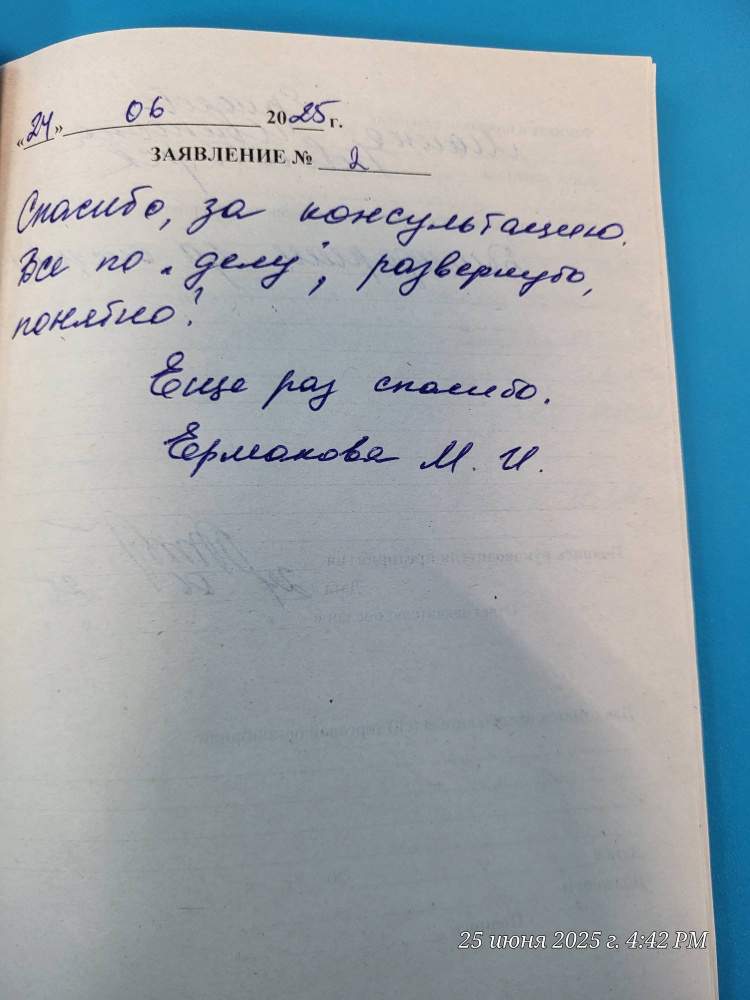 «24» 06 2025 г.
ЗАЯВЛЕНИЕ № 2
Спасибо, за консультацию.
Все по "делу", развернуто,
понятно!
Еще раз спасибо.
Ермакова М. И.
25 июня 2025 г. 4:42 PM